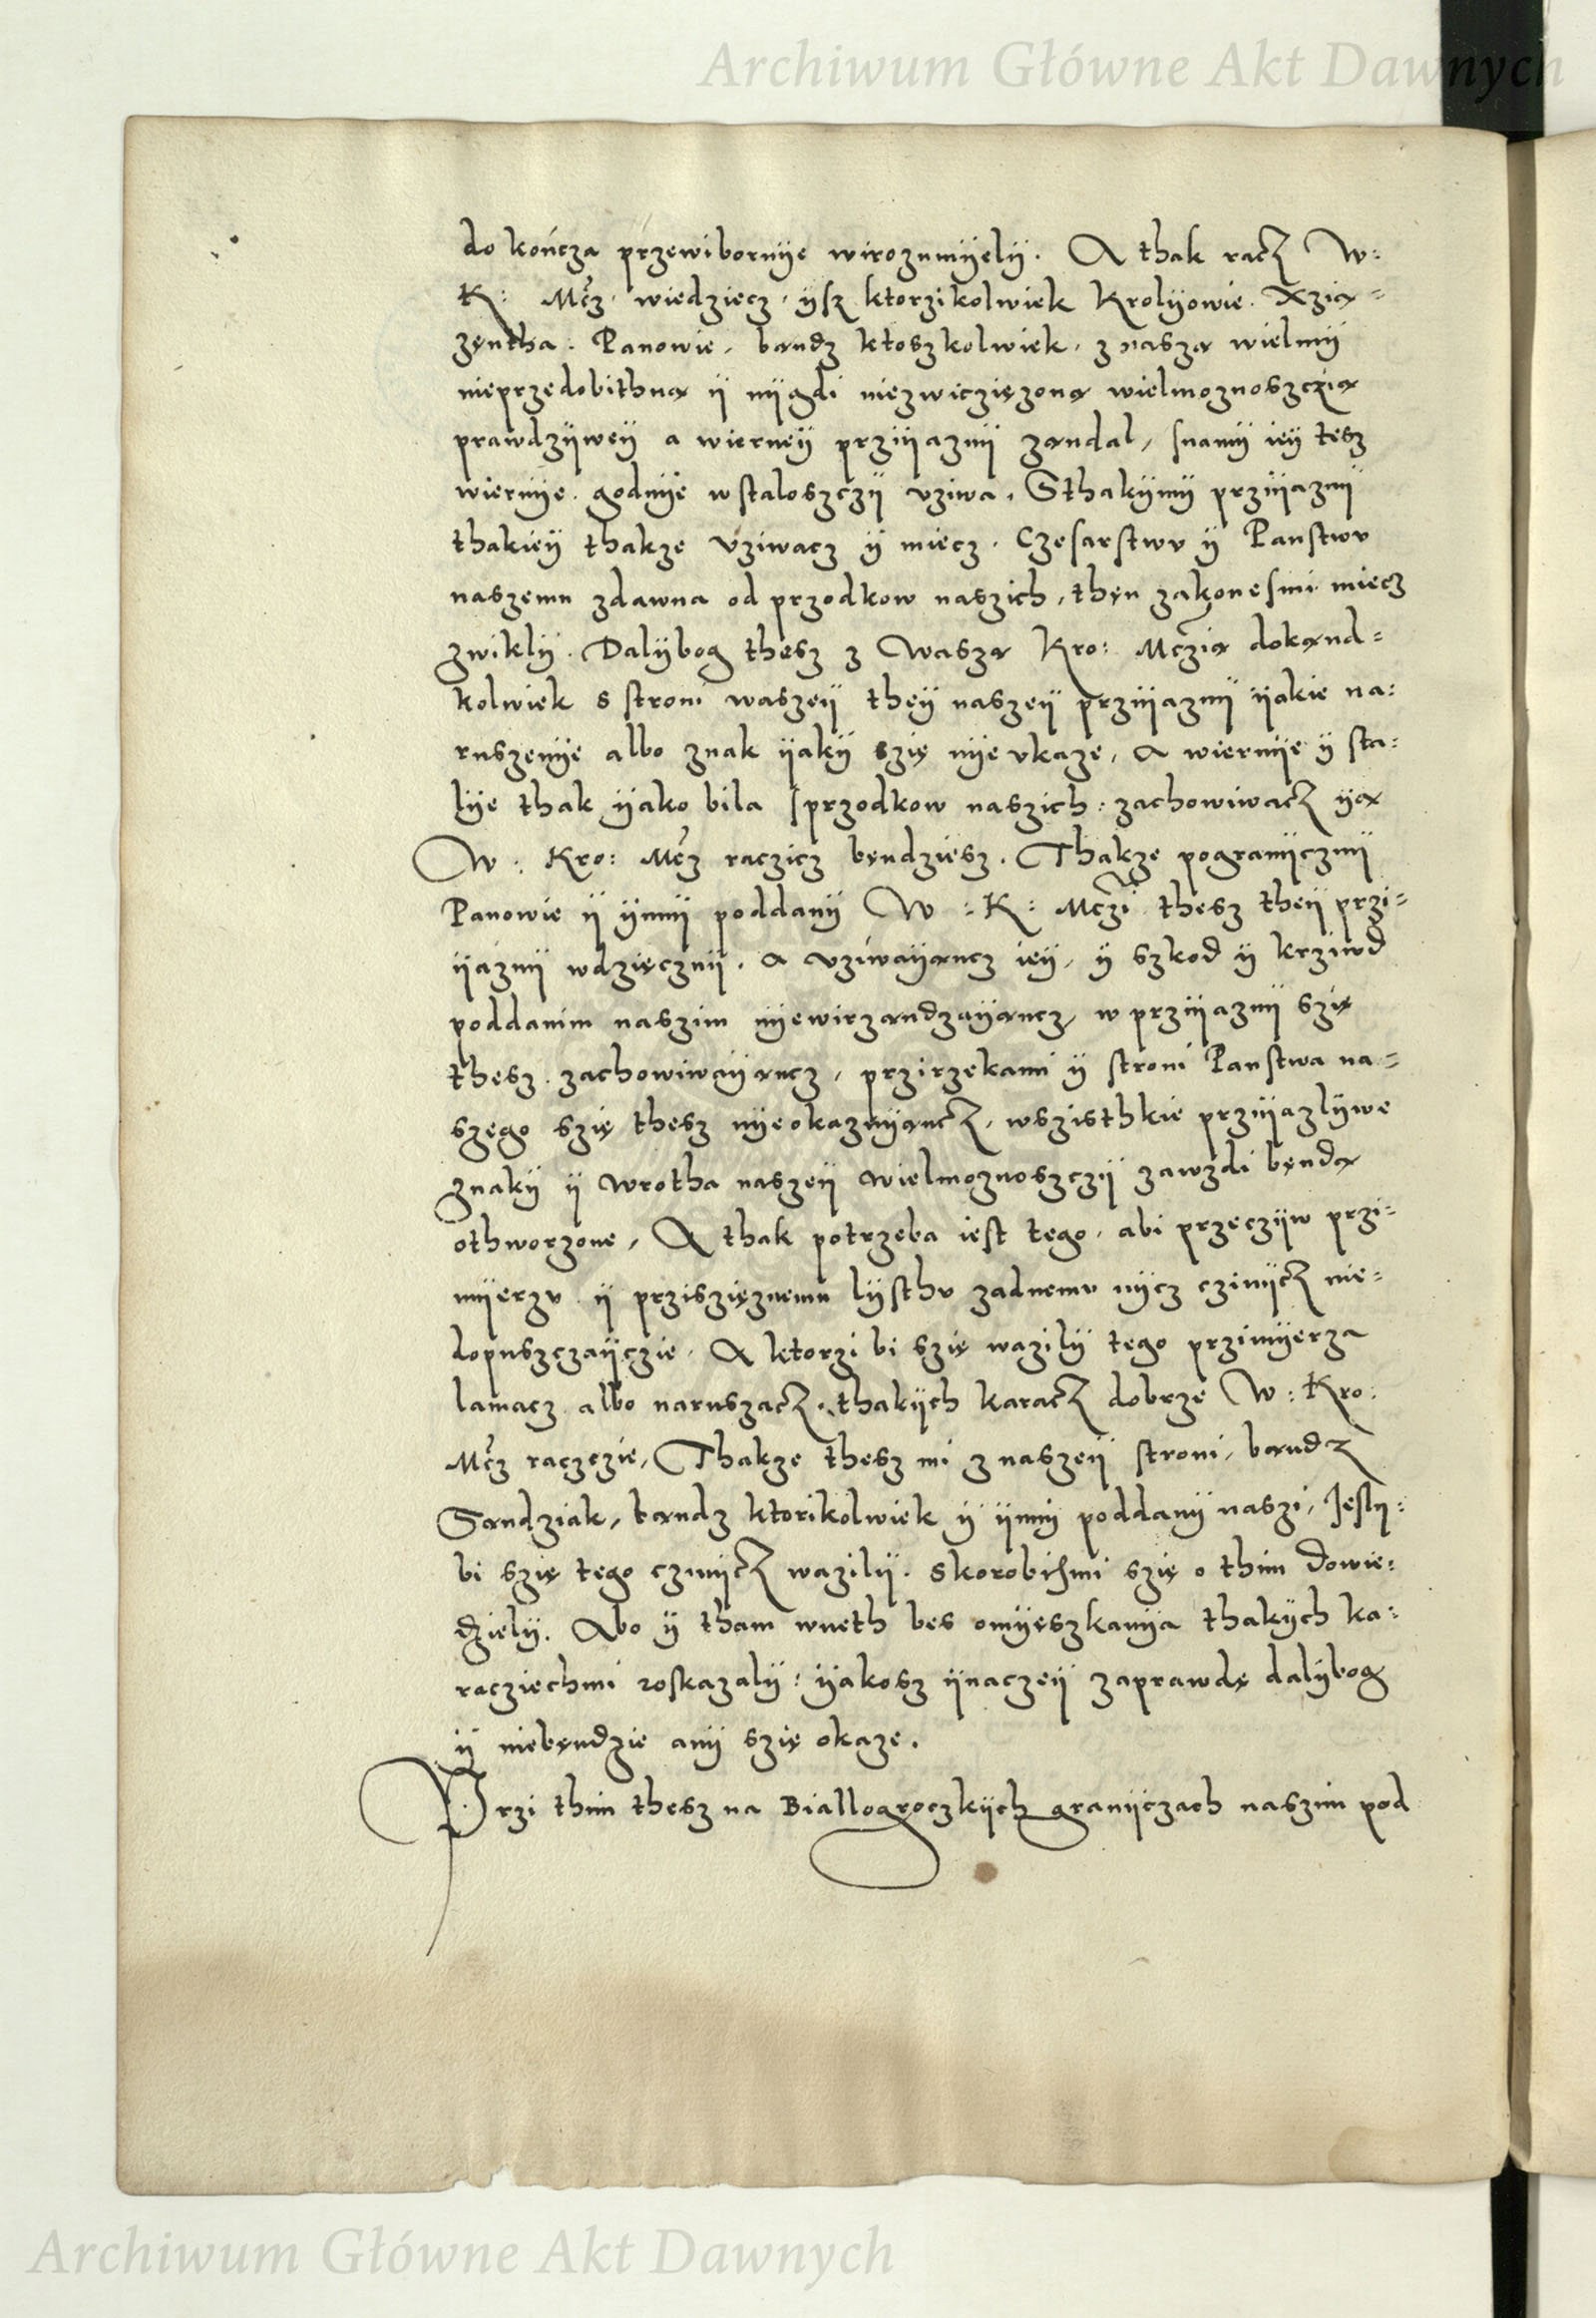 Archiwum Główne Akt Dawnych
do kończa przewibornÿe wirozumÿelÿ. A thak racz W:
K: Mcz. wiedziecz. ÿsz ktorzikolwiek Krolÿowie. Xzią=
zęntha. Panowie. bąndz ktoszkolwiek. z naszą wielmÿ
nieprzedobithną ÿ nÿgdi niezwiczięzoną wielmoznoszczią
prawdzÿweÿ a wierneÿ przÿiaznÿ ząndal, snamÿ ieÿ tesz
wiernÿe. godnÿe wstaloszczÿ vziwa. Sthakÿmÿ przÿiaznÿ
thakieÿ thakze vziwacz ÿ miecz. Czesarstwu ÿ Panstwu
naszemu zdawna od przodkow naszich, thęn zakonesmi miecz
zwiklÿ. Dalÿbog thesz z Waszą Kro: Mczią dokąnd=
kolwiek s stroni waszeÿ theÿ naszeÿ przÿiaznÿ ÿakie na:
ruszenÿe albo znak ÿakÿ szię nÿe vkaze, A wiernÿe ÿ sta:
lÿe thak ÿako bila sprzodkow naszich: zachowiwacz ÿą
W. Kro: Mcz raczicz bęndziesz. Thakze pogranÿcznÿ
Panowie ÿ ÿnnÿ poddanÿ W: K: Mczi thesz theÿ przi=
ÿaznÿ wdzięcznÿ. A vziwaÿąncz ieÿ, ÿ szkod ÿ krziwd
poddanim naszim nÿewirządzaÿąncz, w przÿiaznÿ szię
thesz. zachowiwaÿąncz, przirzekami ÿ stroni Panstwa na=
szego szię thesz nÿeokazuÿąncz, wszisthkie przÿiazlÿwe
znakÿ ÿ wrotha naszeÿ wielmoznoszczÿ zawzdi będą
othworzone, A thak potrzeba iest tego, abi przeczÿw przi=
mÿerzu ÿ prziszięznemu lÿsthu zadnemu nÿcz czinÿcz nie=
dopuszczaÿczie. A ktorzi bi szię wazilÿ tego przimÿerza
lamacz albo naruszacz, thakÿch karacz dobrze W: Kro:
Mcz raczczie, Thakze thesz mi z naszeÿ stroni, bąndz
Sandziak, bąndz ktorikolwiek ÿ ÿnnÿ poddanÿ naszi, Jeslÿ:
bi szię tego czinÿcz wazilÿ. skorobismi szię o thim dowie:
dzielÿ. Abo ÿ tham wneth bes omÿeszkanÿa thakÿch ka:
racziechmi roskazalÿ: ÿakosz ÿnaczeÿ zaprawdę dalÿbog
ÿ niebęndzie anÿ szię okaze.
Przi thim thesz na Biallogroczkÿch granÿczach naszim pod
Archiwum Główne Akt Dawnych